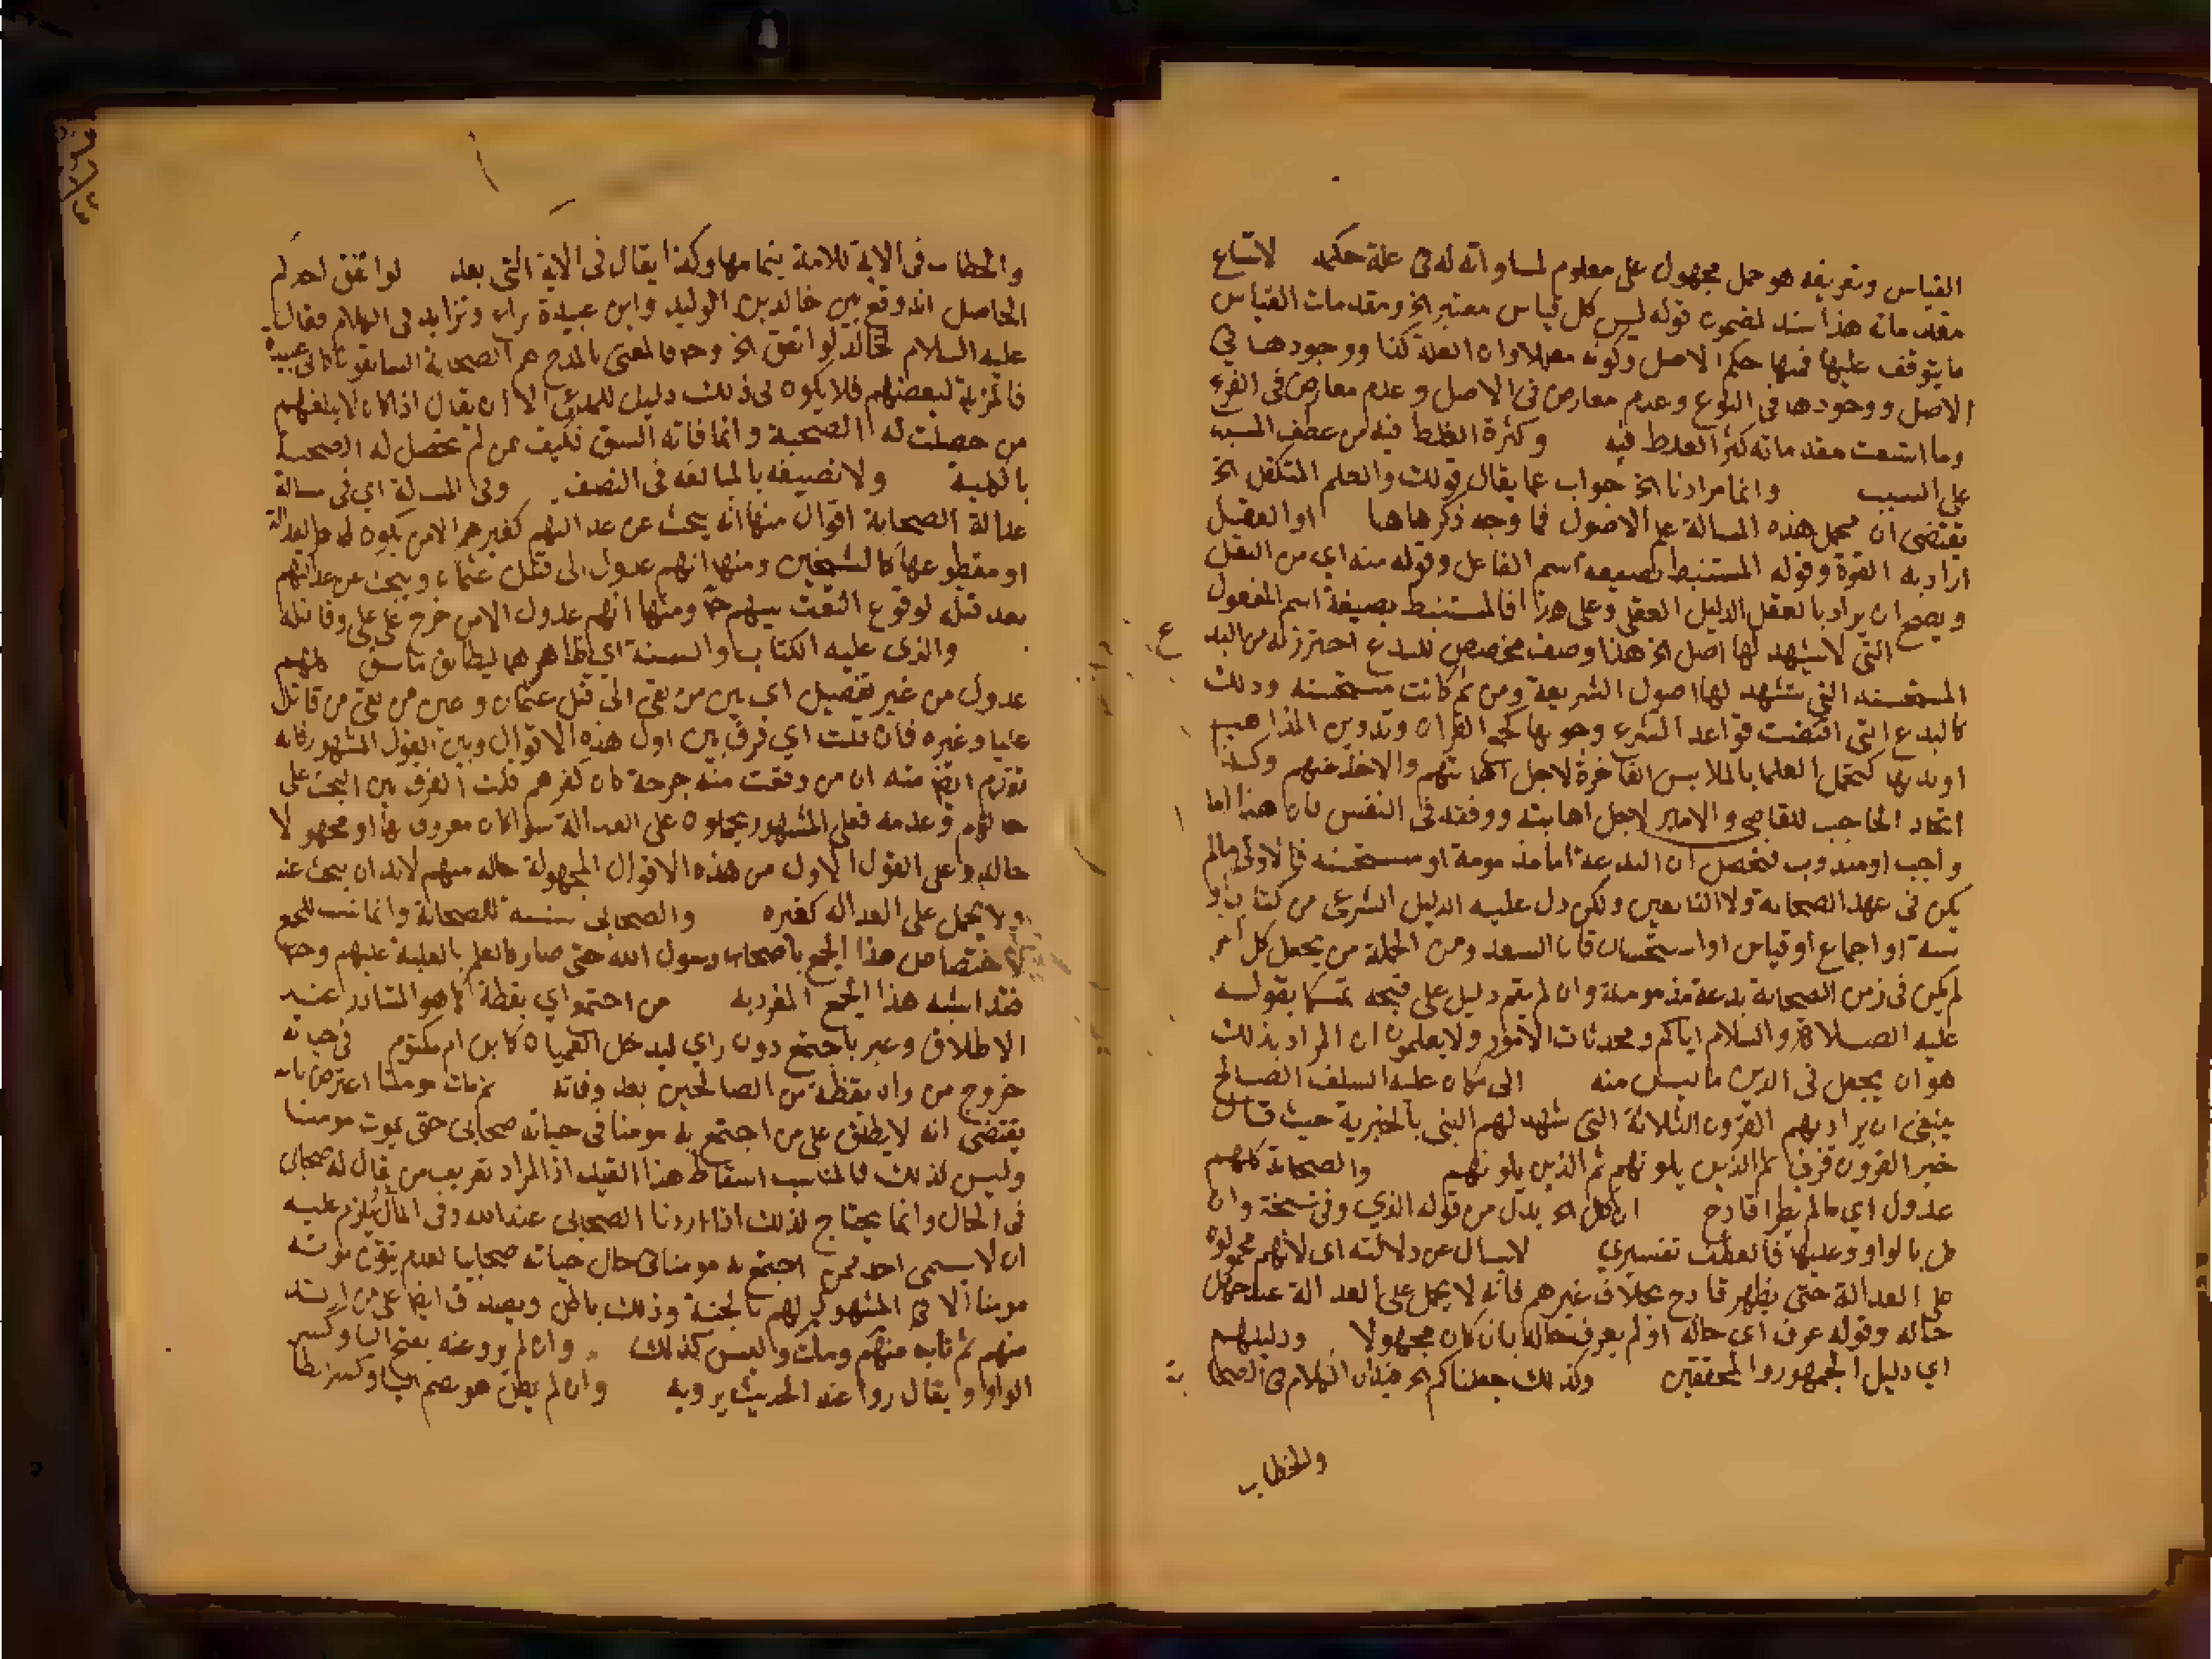 القياس وتعريفه هو حمل مجهول على معلوم لمساواته له في علة حكمه لاتساع
مقدماته هذا سند لضمون قوله ليس كل قياس معتبر الخ ومقدمات القياس
ما يتوقف عليها فمنها حكم الاصل وكونه معللا وان العلة كذا ووجودها في
الاصل ووجودها في الفرع وعدم معارض في الاصل وعدم معارض في الفرع
وما اتسعت مقدماته كثر الغلط فيه وكثرة الغلط فيه من عطف المسبب
على السبب وانما مرادنا الخ جواب عما يقال قولك والعلم المتكفل الخ
يقتضى ان محمل هذه المسالة علم الاصول فما وجه ذكرها هنا او العقل
اراد به القوة وقوله المستنبط بصيغة اسم الفاعل وقوله منه اي من النقل
ويصح ان يراد بالعقل الدليل العقلي وعلى هذا فالمستنبط بصيغة اسم المفعول
التي لا يشهد لها اصل الخ هذا وصف مخصص للبدع احترز به من البدع
المستحسنه التي تشهد لها اصول الشريعة ومن ثم كانت مستحسنه وذلك
كالبدع التي اقتضت قواعد الشرع وجوبها كجمع القران وتدوين المذاهب
او ندبها كتجمل العلما بالملابس الفاخرة لاجل اهابتهم والاخذ عنهم وكذا
اتخاذ الحاجب للقاضي والامير لاجل اهابته ووقعه في النفس فان هذا اما
واجب او مندوب فتحصل ان البدعة اما مذمومة او مستحسنه فالاولى ما لم
يكن في عهد الصحابة ولا التابعين ولكن دل عليه الدليل الشرعي من كتاب او
سنة او اجماع او قياس او استحسان قال السعد ومن الجهلة من يجعل كل امر
لم يكن في زمن الصحابة بدعة مذمومة وان لم يقم دليل على قبحه تمسكا بقوله
عليه الصلاة والسلام اياكم ومحدثات الامور ولا يعلمون ان المراد بذلك
هو ان يجعل في الدين ما ليس منه الى ما كان عليه السلف الصالح
ينبغي ان يراد بهم القرون الثلاثة التي شهد لهم النبي بالخيرية حيث قال
خير القرون قرني ثم الذين يلونهم ثم الذين يلونهم والصحابة كلهم
عدول اي ما لم يطرا قادح ان كل الخ بدل من قوله الذي وفي نسخة وان
كل بالواو وعليها فالعطف تفسيري لا يسال عن دلالته اي لانهم محمولون
على العدالة حتى يظهر قادح بخلاف غيرهم فانه لا يحمل على العدالة عند جهل
حاله وقوله عرف اي حاله او لم يعرف حاله بان كان مجهولا ودليلهم
اي دليل الجمهور والمحققين وكذلك جعلناكم الخ فيه ان الكلام في الصحابة
والخطاب
والخطاب في الاية للامة بتمامها وكذا يقال في الاية التي بعد لو انفق احدكم
الحاصل انه وقع بين خالد بن الوليد وابن عبيدة براء وتزايد في الكلام فقال
عليه السلام لخالد لو انفق الخ وحينئذ فالمعني بالمدح هم الصحابة السابقون كابي عبيدة
فالمزية لبعضهم فلا يكون في ذلك دليل للمدعي الا ان يقال اذا كان لا يبلغهم
من حصلت له الصحبة وانما فاته السبق فكيف بمن لم تحصل له الصحبة
بالكلية ولا نصيفه بالمبالغة في النصف وفي المسالة اي في مسالة
عدالة الصحابة اقوال منها انه يبحث عن عدالتهم كغيرهم الا من يكون ظاهر العدالة
او مقطوعها كالشيخين ومنها انهم عدول الى قتل عثمان ويبحث عن عدالتهم
بعد قتله لوقوع الفتن بينهم ح ومنها انهم عدول الا من خرج على علي وقاتله
والذى عليه الكتاب والسنة اي ظاهرهما ليطابق ما سبق كلهم
عدول من غير تفصيل اي بين من بقي الى قتل عثمان وغيره ومن بقى من قاتل
عليا وغيره فان قلت اي فرق بين اول هذه الاقوال وبين القول المشهور فانه
تقدم ايضا منه ان من وقعت منه جرحة كان كغيرهم قلت الفرق بين البحث على
حالهم وعدمه فعلى المشهور يحملون على العدالة سوا كان معروفا بها او مجهولا
حاله وعلى القول الاول من هذه الاقوال المجهولة حاله منهم لا بد ان يبحث عنه
ولا يحمل على العدالة كغيره والصحابي نسبة للصحابة وانما نسب للجمع
لاختصاص هذا الجمع باصحاب رسول الله حتى صار كالعلم بالغلبة عليهم وحينئذ
فقد اشبه هذا الجمع المفرد من اجتمع اي يقظة كما هو المتبادر عند
الاطلاق وعبر باجتمع دون راي ليدخل العميان كابن ام مكتوم في حياته
خروج من راه يقظة من الصالحين بعد وفاته ثم مات مومنا اعترض بانه
يقتضى انه لا يطلق على من اجتمع به مومنا في حياته صحابي حتى يموت مومنا
وليس كذلك فالمناسب اسقاط هذا القيد اذ المراد تعريف من يقال له صحابي
في الحال وانما يحتاج لذلك اذا اردنا الصحابي عند الله وفي المآل يلزم عليه
ان لا يسمى احد ممن اجتمع به مومنا في حال حياته صحابيا لعدم تيقن موته
مومنا الا في المشهود لهم بالجنة وذلك باطل ويصدق ايضا على من ارتد
منهم ثم تاب منهم ومات وليس كذلك وان لم يرو عنه بفتح اليا وكسر
الواو ويقال روا عنه الحديث يرويه وان لم يطل هو بضم اليا وكسر الطا